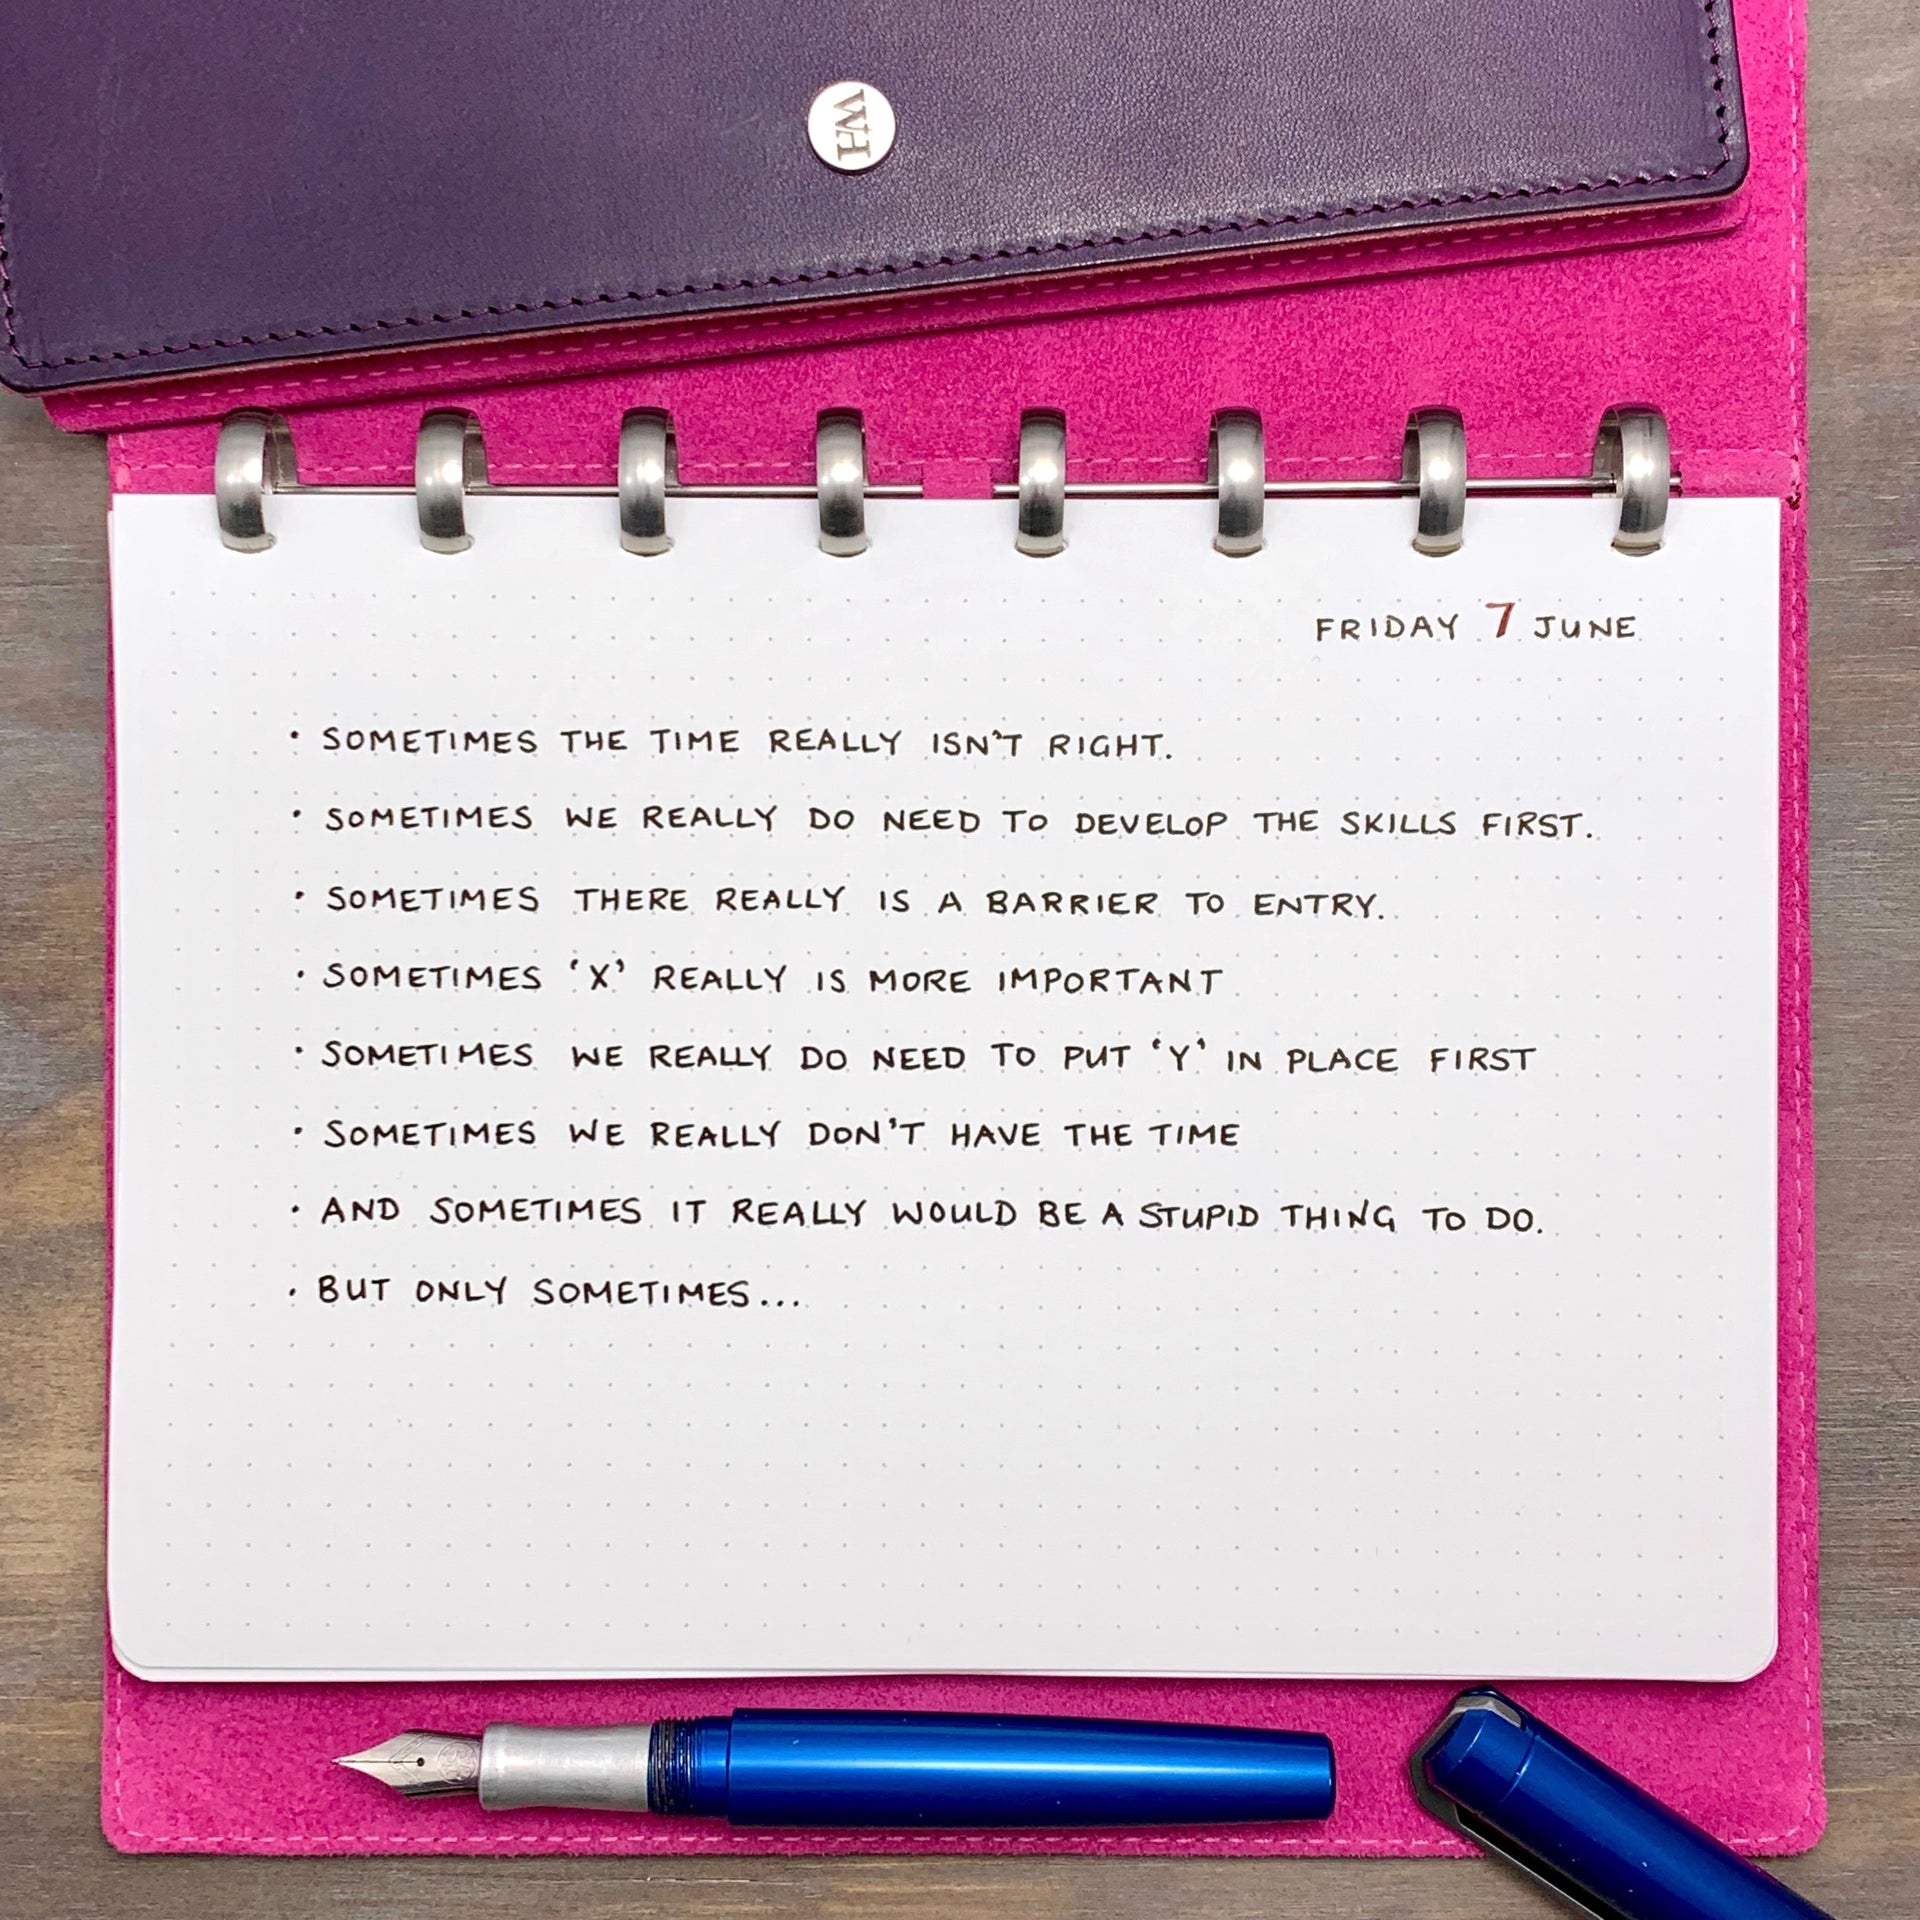 WH
FRIDAY 7 JUNE
· SOMETIMES THE TIME REALLY ISN'T RIGHT.
· SOMETIMES WE REALLY DO NEED TO DEVELOP THE SKILLS FIRST.
· SOMETIMES THERE REALLY IS A BARRIER TO ENTRY.
· SOMETIMES 'X' REALLY IS MORE IMPORTANT
· SOMETIMES WE REALLY DO NEED TO PUT 'Y' IN PLACE FIRST
· SOMETIMES WE REALLY DON'T HAVE THE TIME
· AND SOMETIMES IT REALLY WOULD BE A STUPID THING TO DO.
· BUT ONLY SOMETIMES...